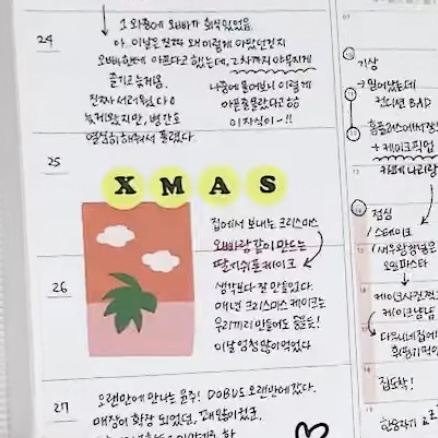 24
그 와중에 오빠가 회식있었음
아. 이날은 진짜 왜이렇게 아팠던건지
오빠한테 아프다고 했는데, 2차까지 야무지게
즐기고 늦게옴.
진짜 서러웠다ㅇ
늦게왔지만, 빨간으
열심히 해줘서 풀렸다.
나중에 물어보니 이렇게
아픈줄몰랐다고ㅎㅎ
이자식이~!!
25
XMAS
집에서 보내는 크리스마스
오빠랑 같이 만드는
딸기쉬폰케이크
생각보다 잘 만들었다.
매년 크리스마스 케이크는
우리끼리 만들어도 충분!
이날 엄청많이먹었다
26
27
오랜만에 만나는 윤주! DOBU도 오랜만에갔다.
매장이 확장 되었던, 꽤많이컸군,
기상
→ 일어났는데
컨디션 BAD
홈플러스에서
+ 케이크픽업
카페나리랑
점심
/ 스테이크
/ 새우왕창넣은
오일파스타
케이크사진
케이크냠냠
다음
집도착!